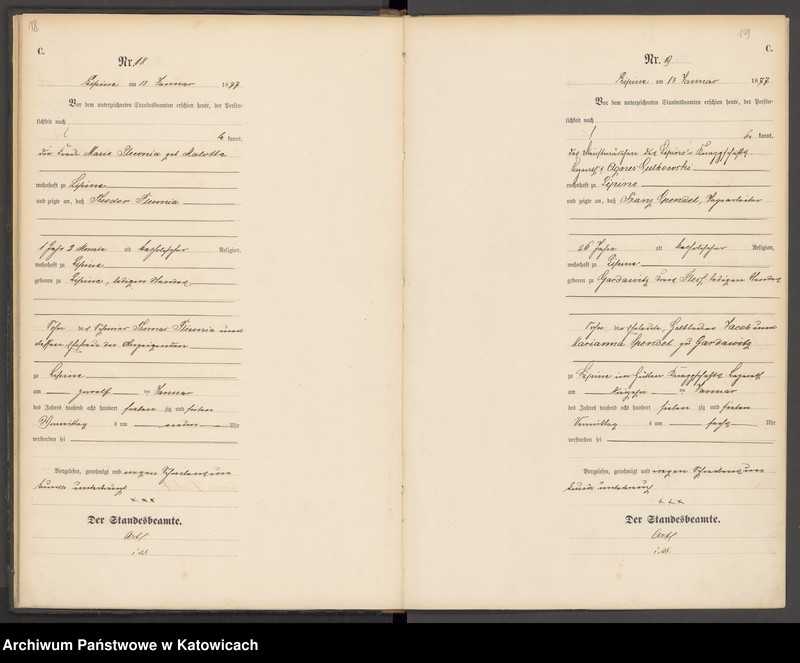 18
C.
Nr. 18
Lipine am 13 Januar 1877
Vor dem unterzeichneten Standesbeamten erschien heute, der Persön-
lichkeit nach
be kannt,
die Frau Marie geb Malotta
wohnhaft zu Lipine
und zeigte an, daß Theodor
1 Jahr 2 Monate alt katholischer Religion,
wohnhaft zu Lipine
geboren zu Lipine, ledigen Standes
Sohn des Thomas und
dessen Ehefrau der Anzeigenden
zu Lipine
am zwoelf ten Januar
des Jahres tausend acht hundert sieben zig und sieben
Vormittag s um neun Uhr
verstorben sei
Vorgelesen, genehmigt und wegen Schreibensun
kunde unterkreuzt
xxx
Der Standesbeamte.
i.V.
19
C.
Nr. 19
Lipine am 13 Januar 1877
Vor dem unterzeichneten Standesbeamten erschien heute, der Persön-
lichkeit nach
be kannt,
das Dienstmädchen des Lipine'r Knappschafts
Lazareth's Agnes
wohnhaft zu Lipine
und zeigte an, daß Franz Spendel, Tagearbeiter
26 Jahre alt katholischer Religion,
wohnhaft zu Lipine
geboren zu Gardawitz Kreis Pless, ledigen Standes
Sohn der Eheleute, Jacob und
Marianna Spendel zu Gardawitz
zu Lipine im Hütten Knappschafts Lazareth
am ten Januar
des Jahres tausend acht hundert sieben zig und sieben
Vormittag s um sechs Uhr
verstorben sei
Vorgelesen, genehmigt und wegen Schreibensun
kunde unterkreuzt
xxx
Der Standesbeamte.
i.V.
Archiwum Państwowe w Katowicach